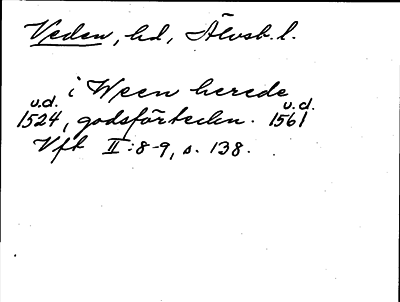 Veden, hd, Älvsb. l.
i Ween herede
u.d. u.d.
1524, godsförteckn. 1561
Vft II:8-9, s. 138.